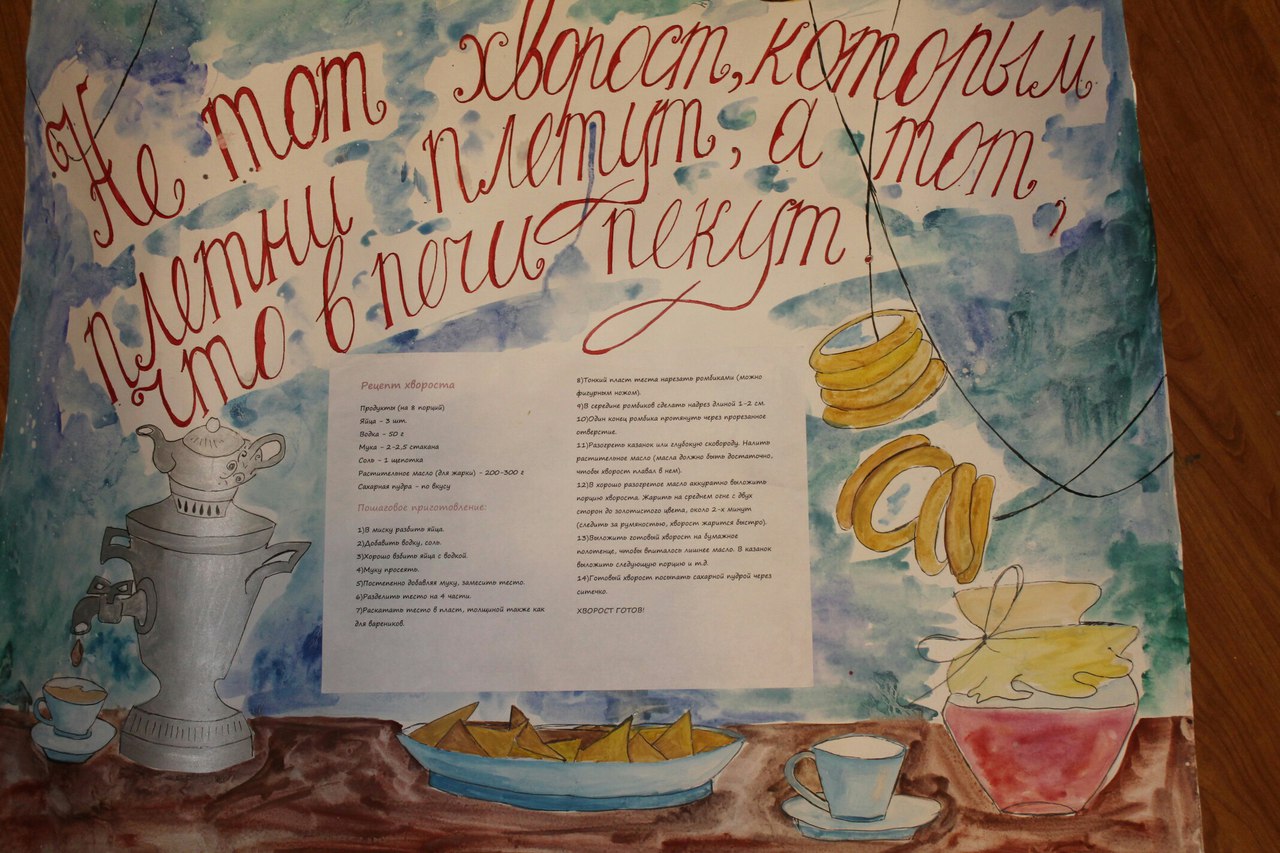 Не тот хворост, которым
плетни плетут, а тот,
что в печи пекут
Рецепт хвороста
Продукты (на 8 порций)
Яйца - 3 шт.
Водка - 50 г
Мука - 2-2,5 стакана
Соль - 1 щепотка
Растительное масло (для жарки) - 200-300 г
Сахарная пудра - по вкусу
Пошаговое приготовление:
1)В миску разбить яйца.
2)Добавить водку, соль.
3)Хорошо взбить яйца с водкой.
4)Муку просеять.
5)Постепенно добавляя муку, замесить тесто.
6)Разделить тесто на 4 части.
7)Раскатать тесто в пласт, толщиной также как
для вареников.
8)Тонкий пласт теста нарезать ромбиками (можно
фигурным ножом).
9)В середине ромбиков сделать надрез длиной 1-2 см.
10)Один конец ромбика протянуть через прорезанное
отверстие.
11)Разогреть казанок или глубокую сковороду. Налить
растительное масло (масла должно быть достаточно,
чтобы хворост плавал в нем).
12)В хорошо разогретое масло аккуратно выложить
порцию хвороста. Жарить на среднем огне с двух
сторон до золотистого цвета, около 2-х минут
(следить за румяностью, хворост жарится быстро).
13)Выложить готовый хворост на бумажное
полотенце, чтобы впиталось лишнее масло. В казанок
выложить следующую порцию и т.д.
14)Готовый хворост посыпать сахарной пудрой через
ситечко.
ХВОРОСТ ГОТОВ!